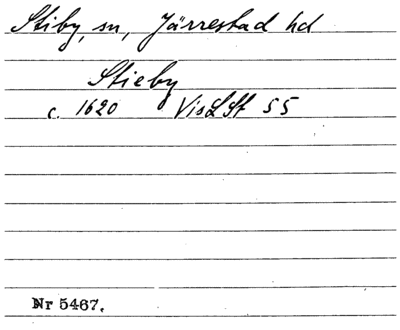 Stiby, sn, Järrestad hd
Stieby
c. 1620 VisLSt 55
Nr 5467.